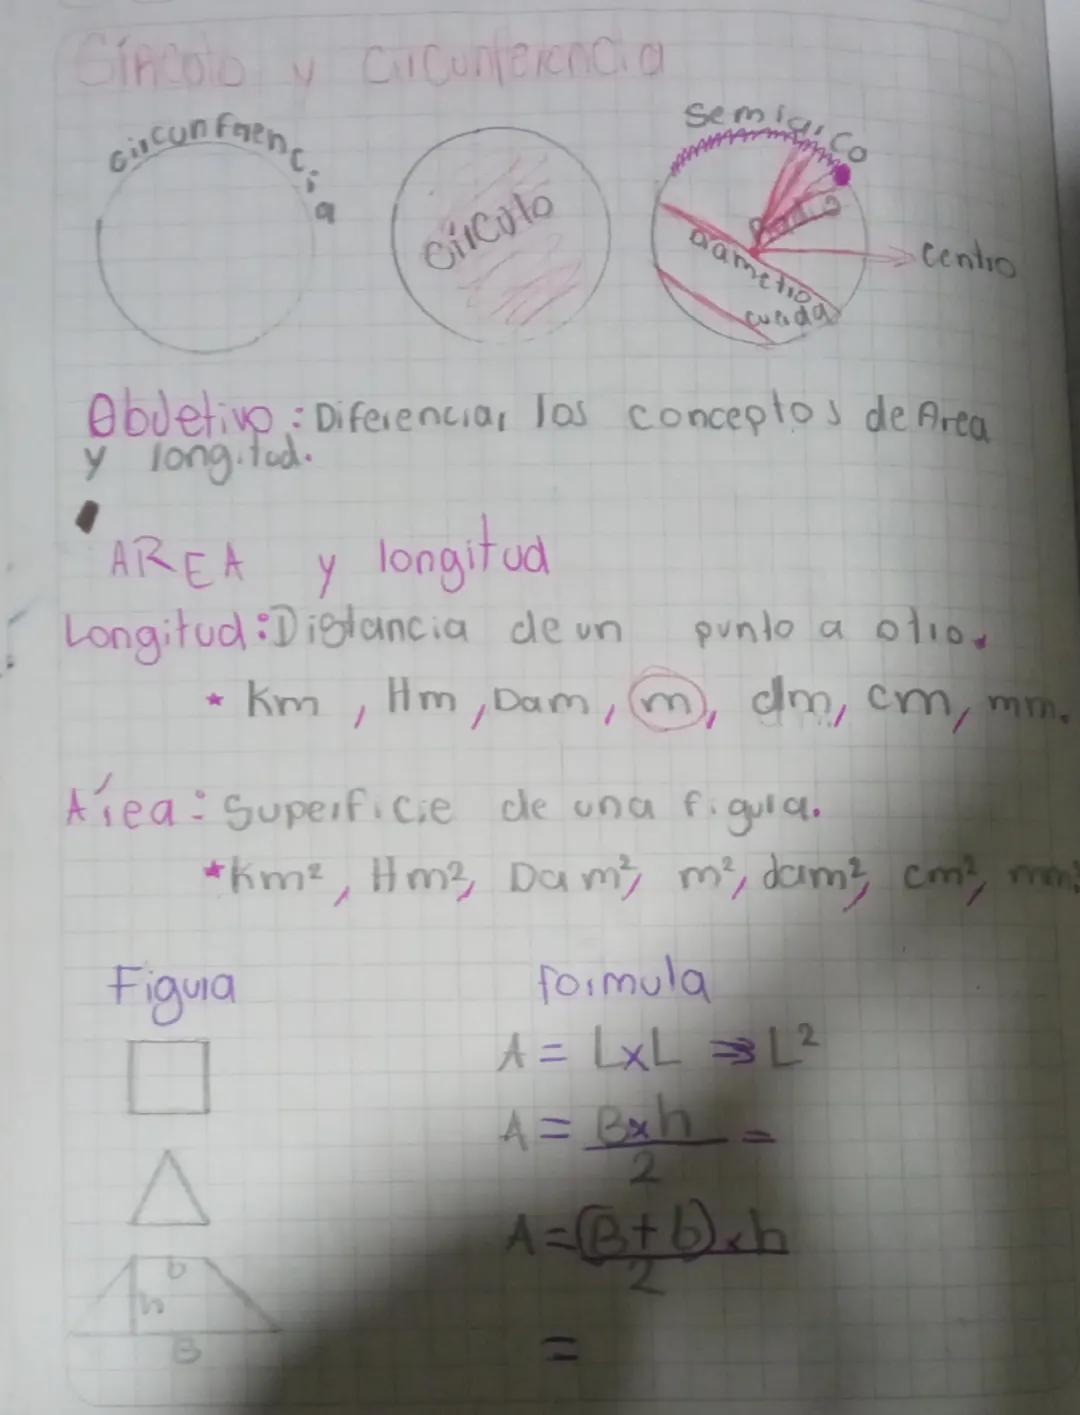 Círcolo y circunferencia
circunferencia
círculo
semiarco
Radio
Diametro
cuerda
centro
Objetivo: Diferenciar los conceptos de Area
y longitud.
AREA y longitud
Longitud: Distancia de un punto a otro.
* Km, Hm, Dam, m, dm, cm, mm.
Área: Superficie de una figura.
* Km², Hm², Dam², m², dam², cm², mm²
Figura formula
A = L×L ⇒ L²
A = B×h =
2
A = (B+b)×h
2
b
h
B
=